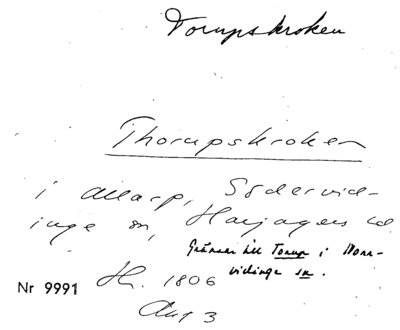 Torupskroken
Thorupskroken
i Allarp, Södervid-
inge sn, Harjagers hd
Gränsar till Torup i Norr-
vidinge sn.
Nr 9991
H. 1806
Akt 3